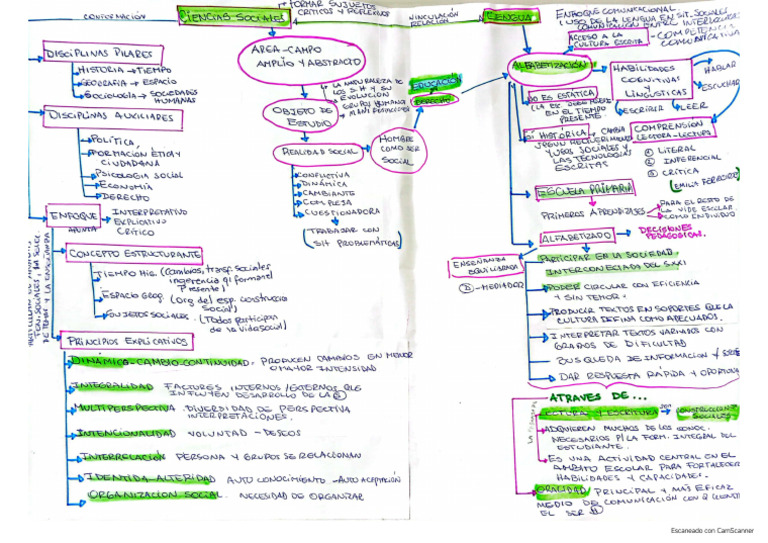 CONFORMACIÓN
CIENCIAS SOCIALES
FORMAR SUJETOS
CRÍTICOS Y REFLEXIVOS
VINCULACIÓN
RELACIÓN
DISCIPLINAS PILARES
HISTORIA → TIEMPO
GEOGRAFIA → ESPACIO
SOCIOLOGÍA → SOCIEDADES
HUMANAS
DISCIPLINAS AUXILIARES
POLÍTICA,
FORMACIÓN ÉTICA Y
CIUDADANA
PSICOLOGIA SOCIAL
ECONOMÍA
DERECHO
ENFOQUE
APUNTA
INTERPRETATIVO
EXPLICATIVO
CRÍTICO
CONCEPTO ESTRUCTURANTE
TIEMPO HIS. (Cambios, transf. Sociales
Presente)
ESPACIO GEOG. (Org del esp. construccio
Social)
SUJETOS SOCIALES. (Todos participan
de la vida social)
PRINCIPIOS EXPLICATIVOS
DINÁMICO-CAMBIO CONTINUIDAD. PRODUCEN CAMBIOS EN MENOR
O MAYOR INTENSIDAD
INTEGRALIDAD FACTORES INTERNOS/EXTERNOS QUE
INFLUYEN DESARROLLO DE LA
MULTIPERSPECTIVA. DIVERSIDAD DE PERSPECTIVA
INTERPRETACIONES.
INTENCIONALIDAD VOLUNTAD - DESEOS
INTERRELACIÓN PERSONA Y GRUPOS SE RELACIONAN
IDENTIDA ALTERIDAD AUTO CONOCIMIENTO - AUTO ACEPTACIÓN
ORGANIZACIÓN SOCIAL. NECESIDAD DE ORGANIZAR
AREA-CAMPO
AMPLIO Y ABSTRACTO
OBJETO DE
ESTUDIO
LA NATURALEZA DE
LOS S.H Y SU
EVOLUCIÓN
GRUPOS HUMANOS
REALIDAD SOCIAL
HOMBRE
COMO SER
SOCIAL
CONFLICTIVA
DINÁMICA
CAMBIANTE
COMPLEJA
CUESTIONADORA
TRABAJAR CON
SIT PROBLEMÁTICAS
EDUCACIÓN
DERECHO
LENGUA
ENFOQUE COMUNICACIONAL.
USO DE LA LENGUA EN SIT. SOCIALES
ACCESO A LA
CULTURA ESCRITA
COMPETENCIA
COMUNICATIVA
ALFABETIZACIÓN
HABILIDADES
COGNITIVAS
Y
LINGÜÍSTICAS
HABLAR
ESCUCHAR
LEER
ESCRIBIR
NO ES ESTÁTICA
EN EL TIEMPO
PRESENTE
COMPRENSIÓN
LECTORA-LECTURA
① LITERAL
② INFERENCIAL
③ CRÍTICA
(EMILIA FERREIRO)
ES HISTÓRICA → CAMBIA
SEGÚN REQUERIMIENTO
Y USOS SOCIALES Y
LAS TECNOLOGÍAS
ESCRITAS
ESCUELA PRIMARIA
PRIMEROS APRENDIZAJES
PARA EL RESTO DE
LA VIDA ESCOLAR.
COMO INDIVIDUO
ALFABETIZADO
DECISIONES
PEDAGÓGICAS.
ENSEÑANZA
EQUILIBRADA
(D) - MEDIADOR
PARTICIPAR EN LA SOCIEDAD
INTERCONECTADA DEL SXXI
PODER CIRCULAR CON EFICIENCIA
Y SIN TEMOR.
PRODUCIR TEXTOS EN SOPORTES QUE LA
CULTURA DEFINA COMO ADECUADOS.
INTERPRETAR TEXTOS VARIADOS CON
GRADOS DE DIFICULTAD
BUSQUEDA DE INFORMACIÓN Y
DAR RESPUESTA RÁPIDA Y OPORTUNA
ATRAVES DE...
LECTURA Y ESCRITURA SON CONSTRUCCIONES
SOCIALES
ADQUIEREN MUCHOS DE LOS CONOC.
NECESARIOS P/LA FORM. INTEGRAL DEL
ESTUDIANTE.
ES UNA ACTIVIDAD CENTRAL EN EL
ÁMBITO ESCOLAR PARA FORTALECER
HABILIDADES Y CAPACIDADES.
ORALIDAD PRINCIPAL Y MÁS EFICAZ
MEDIO DE COMUNICACIÓN CON Q CUENTA
EL SER H
Escaneado con CamScanner